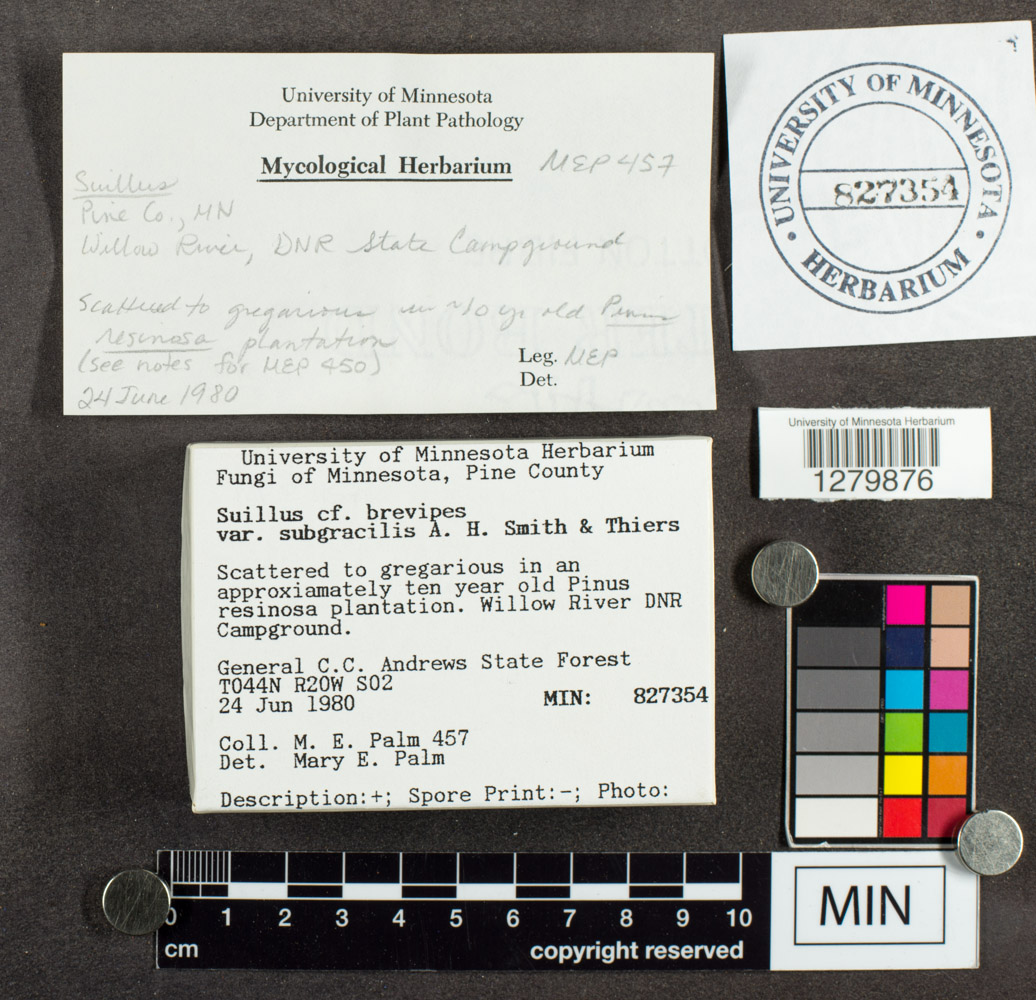 University of Minnesota
Department of Plant Pathology
Mycological Herbarium MEP 457
Suillus
Pine Co., MN
Willow River, DNR State Campground
Scattered to gregarious in ~10 yr old Pinus
resinosa plantation
(see notes for MEP 450)
Leg. MEP
Det.
24 June 1980
UNIVERSITY OF MINNESOTA
827354
HERBARIUM
University of Minnesota Herbarium
1279876
University of Minnesota Herbarium
Fungi of Minnesota, Pine County
Suillus cf. brevipes
var. subgracilis A. H. Smith & Thiers
Scattered to gregarious in an
approxiamately ten year old Pinus
resinosa plantation. Willow River DNR
Campground.
General C.C. Andrews State Forest
T044N R20W S02
24 Jun 1980 MIN: 827354
Coll. M. E. Palm 457
Det. Mary E. Palm
Description:+; Spore Print:-; Photo:
0 1 2 3 4 5 6 7 8 9 10
cm copyright reserved
MIN